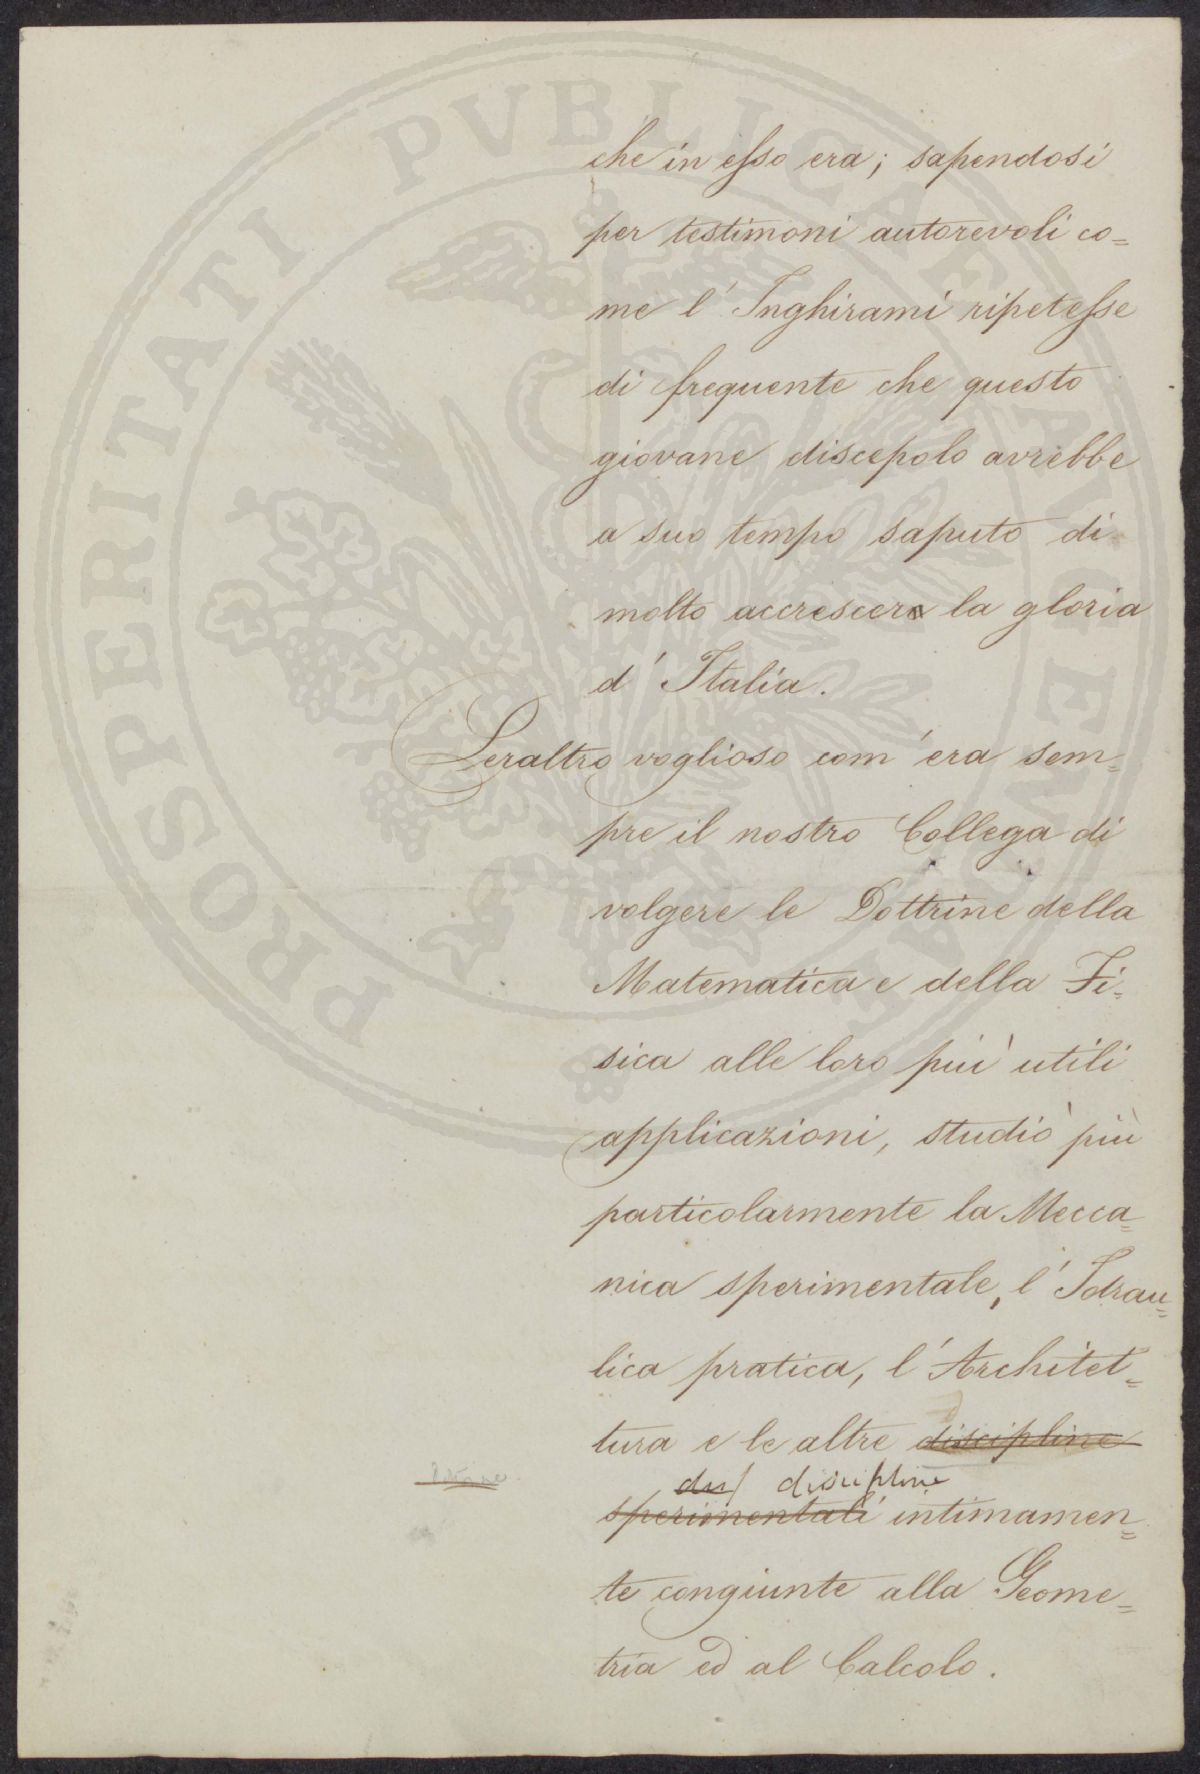 PROSPERITATI PVBLICAE AVGENDAE
che in esso era; sapendosi
per testimoni autorevoli co=
me l'Inghirami ripetesse
di frequente che questo
giovane discepolo avrebbe
a suo tempo saputo di
molto accrescere la gloria
d'Italia.
Peraltro voglioso com'era sem=
pre il nostro Collega di
volgere le Dottrine della
Matematica e della Fi=
sica alle loro più utili
applicazioni, studiò più
particolarmente la Mecca=
nica sperimentale, l'Idrau=
lica pratica, l'Architet=
tura e le altre discipline
discipline
sperimentali intimamen=
te congiunte alla Geome=
tria ed al Calcolo.